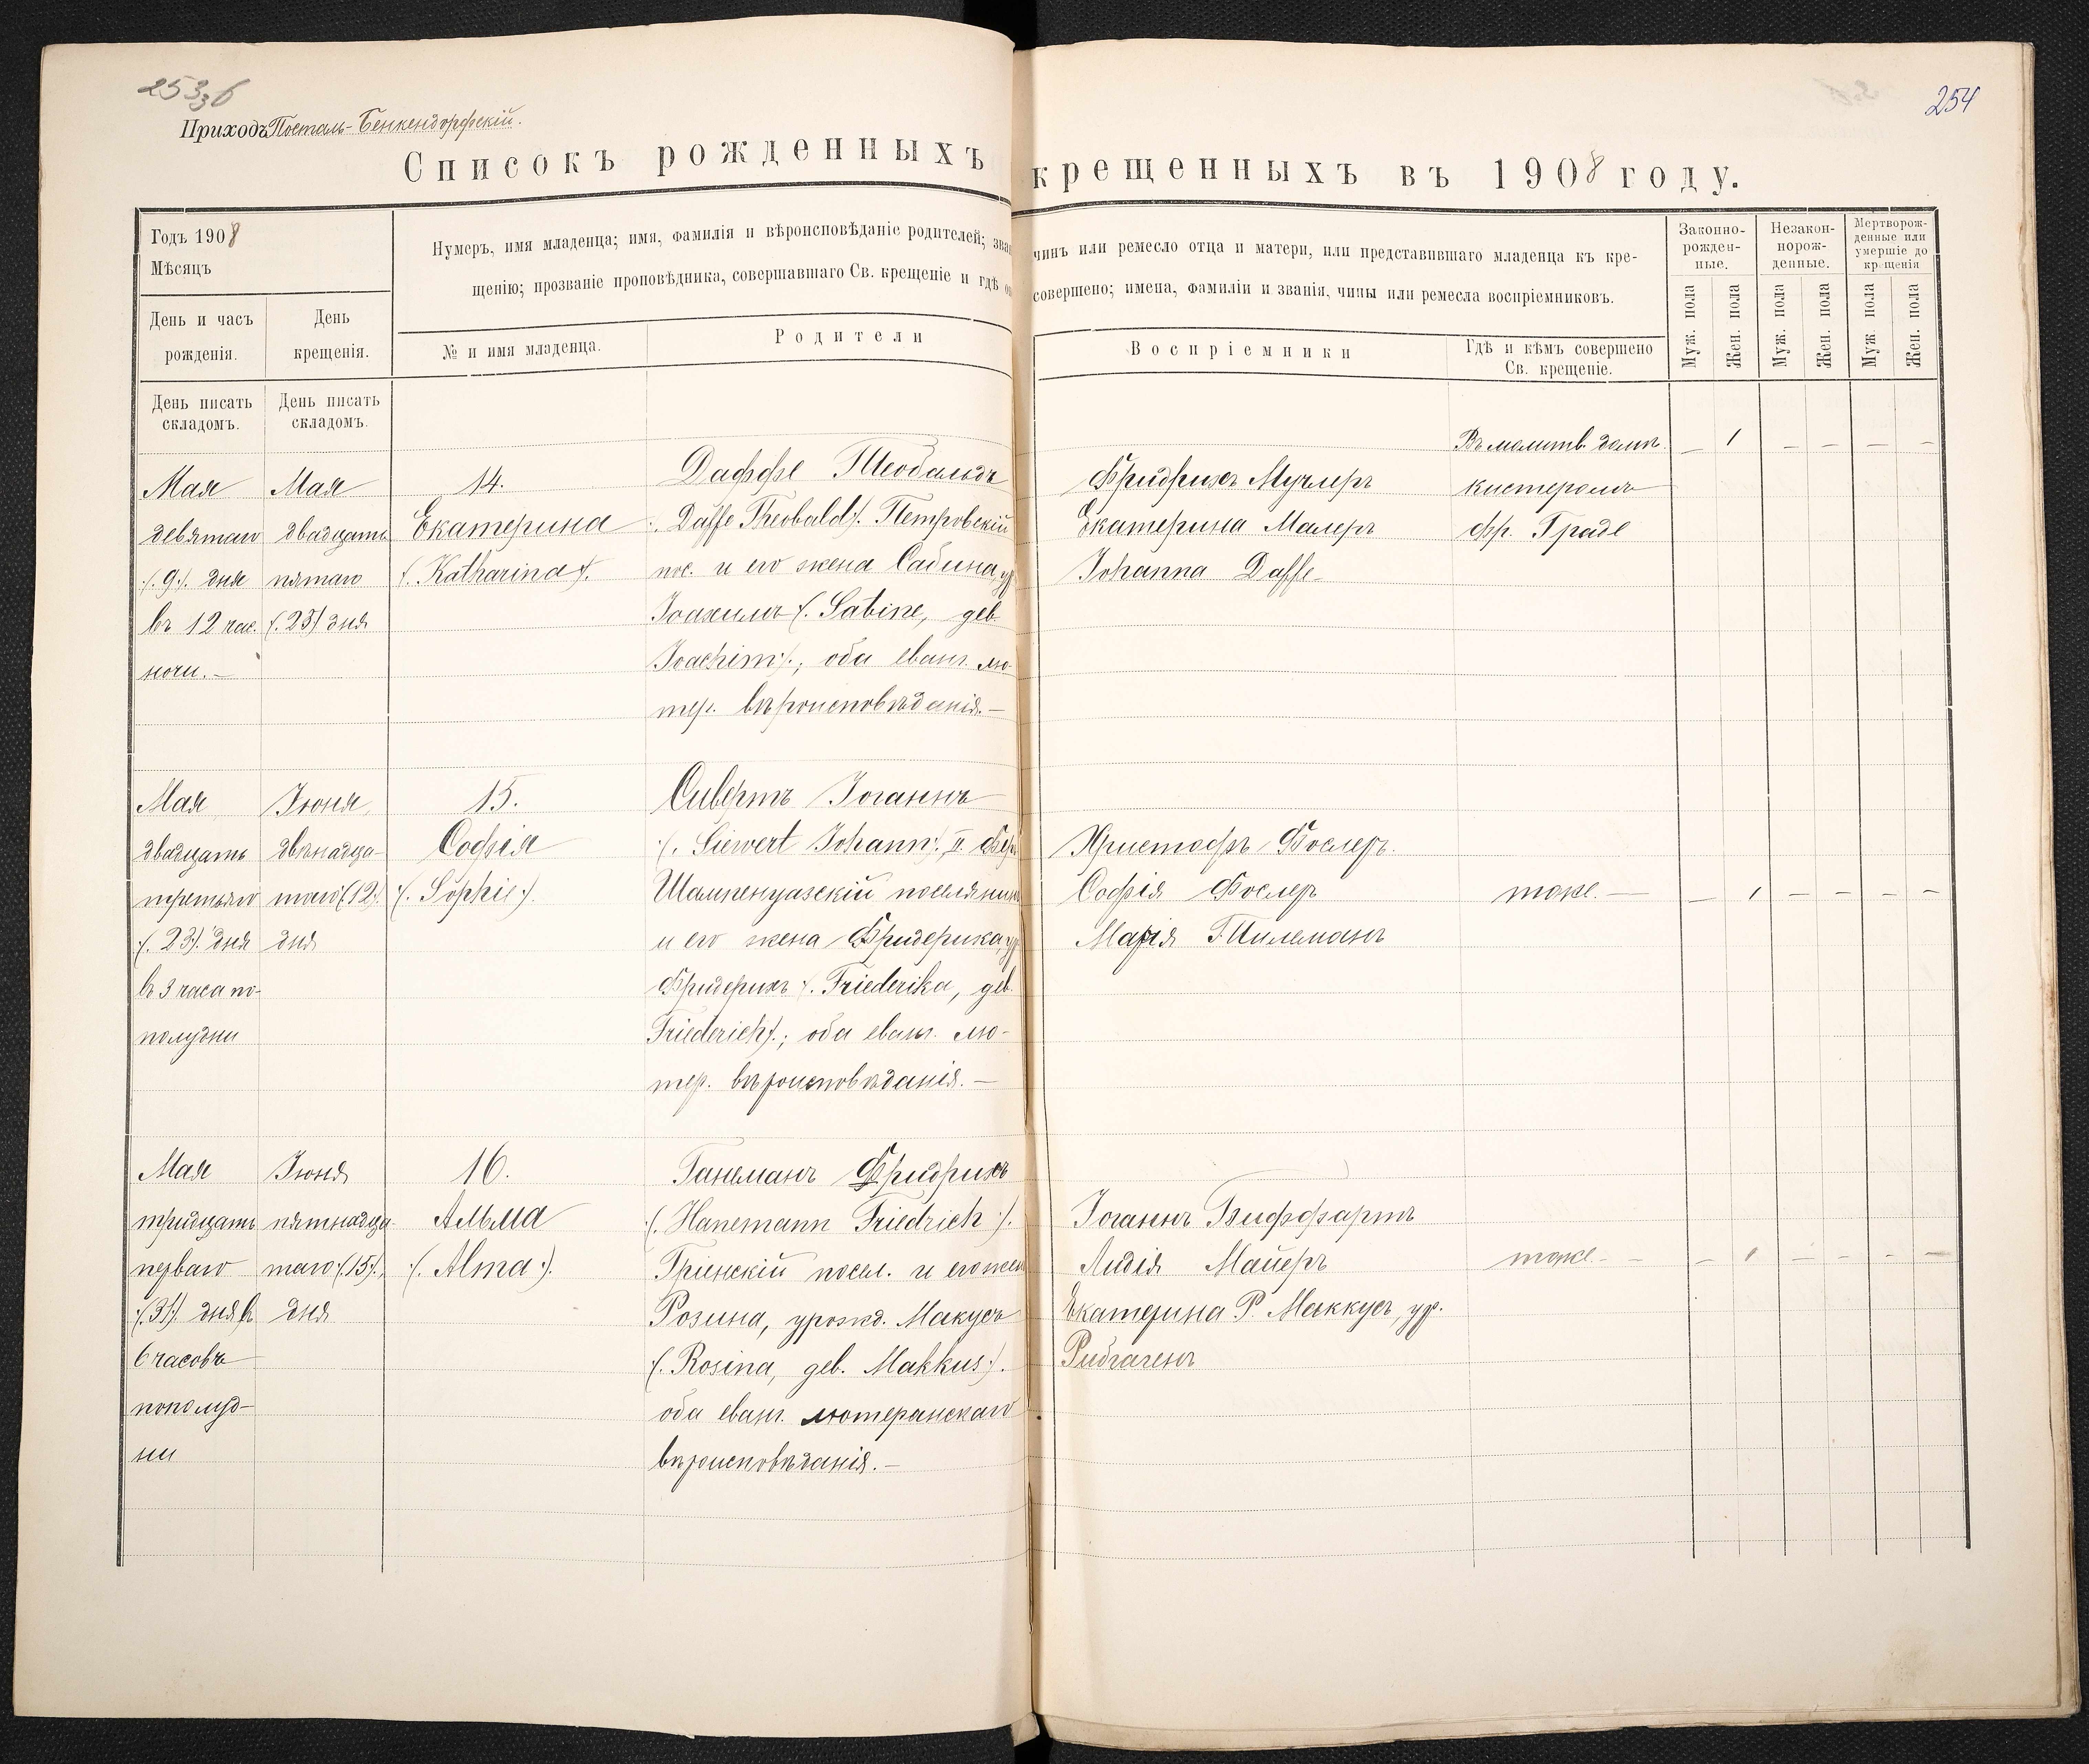 253 об
254
Приходъ Посталь-Бенкендорфскій.
Списокъ рожденныхъ крещенныхъ въ 1908 году.
Годъ 1908
Мѣсяцъ
Нумеръ, имя младенца; имя, фамилія и вѣроисповѣданіе родителей; зва чинъ или ремесло отца и матери, или представившаго младенца къ кре-
щенію; прозваніе проповѣдника, совершавшаго Св. крещеніе и гдѣ совершено; имена, фамиліи и званія, чины или ремесла воспріемниковъ.
Законно-
рожден-
ные.
Незакон-
норож-
денные.
Мертворож-
денные или
умершіе до
крещенія
День и часъ
рожденія.
День
крещенія.
№ и имя младенца.
Родители
Воспріемники
Гдѣ и кѣмъ совершено
Св. крещеніе.
Муж. пола
Жен. пола
Муж. пола
Жен. пола
Муж. пола
Жен. пола
День писать
складомъ.
День писать
складомъ.
Мая
девятаго
(.9.). дня
въ 12 час.
ночи.—
Мая
двадцать
пятаго
(.25) дня
14.
Екатерина
(. Katharina .).
Даффе Теобальдъ
(. Daffe Theobald). Петровскій
пос. и его жена Сабина, ур
Іоахимъ (. Sabine, geb.
Joachim.).; оба еванг. лю-
тер. вѣроисповѣданія.—
Фридрихъ Мучлеръ
Екатерина Малеръ
Johanna Daffe
Въ молитв. домѣ.
кистеромъ
Фр. Граде
— 1 — — — —
Мая
двадцать
третьяго
(. 23.). дня
въ 3 часа по-
полудни
Іюня
двѣнадца-
таго (12.).
дня
15.
Софія
(. Sophie .).
Сивертъ Іоганнъ
(. Siewert Johann.). II. Фер
Шампенуазскій поселянинъ
и его жена Фридерика, ур
Фридерихъ (. Friederika, geb.
Friederich.).; оба еванг. лю-
тер. вѣроисповѣданія.—
Христофъ Фослеръ.
Софія Фослеръ
Марія Тилеманъ
тоже.—
— 1 — — — —
Мая
тридцать
перваго
(.31.). дня въ
6 часовъ
пополуд-
ни
Іюня
пятнадца-
таго (.15.).
дня
16.
Альма
(. Alma .).
Ганеманъ Фридрихъ
(. Hanemann Friedrich .).
Грінскій посел. и его жена
Розина, урожд. Макусъ
(. Rosina, geb. Makkus .).
оба еванг. лютеранскаго
вѣроисповѣданія.—
Іоганнъ Биффартъ
Лидія Майеръ
Екатерина Р. Маккусъ, ур.
тоже.—
— 1 — — — —